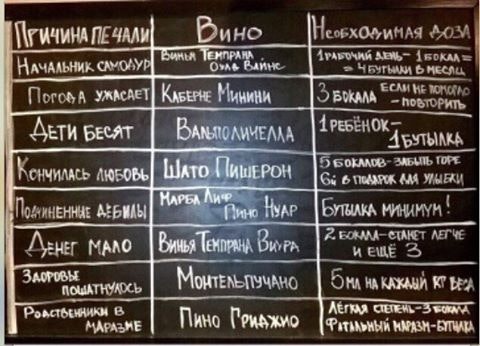 Причина печали
Вино
Необходимая доза
Начальник самодур
Винья Темпрана
Оулд Вайнс
1 рабочий день - 1 бокал =
= 4 бутыли в месяц
Погода ужасает
Каберне Минини
3 бокала если не помогло
- повторить
Дети бесят
Вальполичелла
1 ребёнок -
1 бутылка
Кончилась любовь
Шато Пишерон
5 бокалов - забыть горе
6й в подарок для улыбки
Подчиненные дебилы
Марба Лиф
Пино Нуар
Бутылка минимум!
Денег мало
Винья Темпрана Виура
2 бокала - станет легче
и ещё 3
Здоровье
пошатнулось
Монтельпучано
5 мл на каждый кг веса
Родственники в
маразме
Пино Гриджио
Лёгкая степень - 3 бокала
Фатальный маразм - бутылка